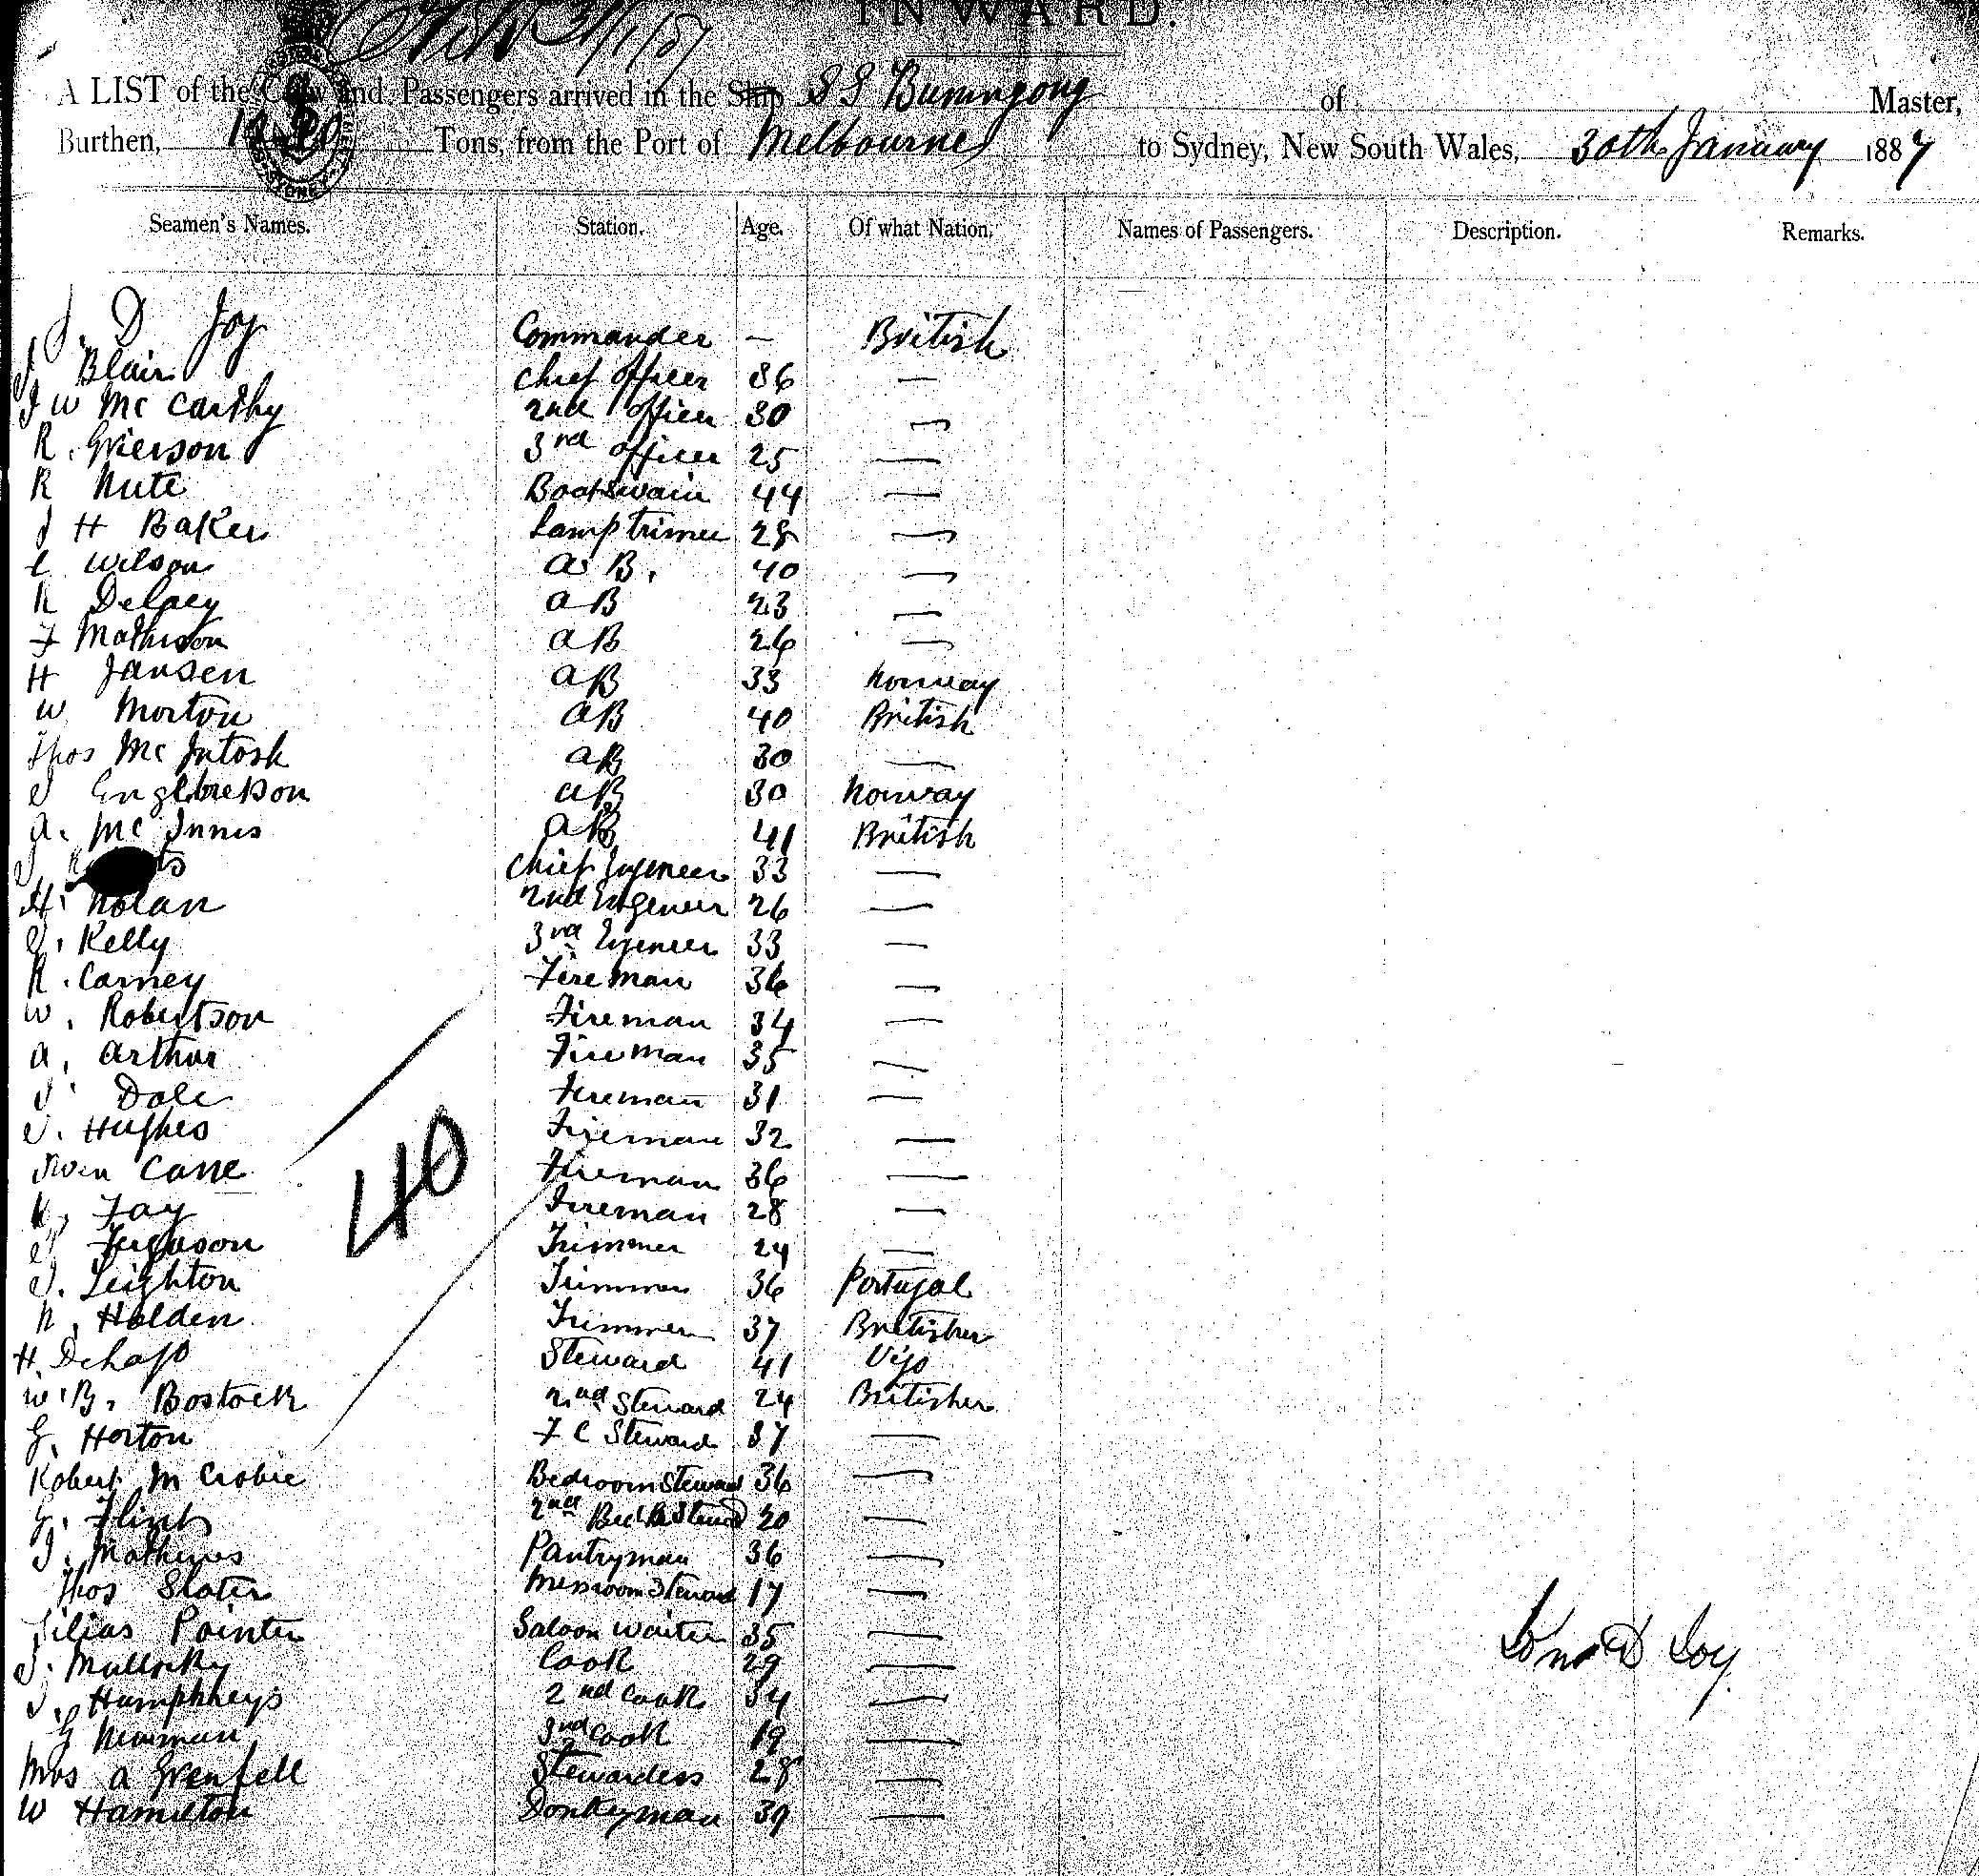 INWARD.
A LIST of the Crew and Passengers arrived in the Ship SS Buninyong of Master,
Burthen, Tons, from the Port of Melbourne to Sydney, New South Wales, 30th January 1887
Seamen's Names. Station. Age. Of what Nation. Names of Passengers. Description. Remarks.
J. D Joy Commander — British
J Blair Chief Officer 36 —
J W Mc Carthy 2nd Officer 30 —
R. Grierson 3rd Officer 25 —
R Nute Boatswain 44 —
J H Baker Lamptrimer 28 —
C Wilson A. B. 40 —
R Delaey AB 23 —
F Mathison AB 26 —
H Jansen AB 33 Norway
W Morton AB 40 British
Thos Mc Intosh AB 30 —
J Englbretson AB 30 Norway
A. Mc Innis AB 41 British
Chief Engeneer 33 —
H. Nolan 2nd Engeneer 26 —
J. Kelly 3rd Engeneer 33 —
R. Carney Fireman 36 —
W. Robertson Fireman 34 —
A. Arthur Fireman 35 —
J. Dale Fireman 31 —
J. Hughes Fireman 32 —
Owen Cane Fireman 36 —
40
K. Fay Fireman 28 —
J. Ferguson Trimmer 24 —
J. Leighton Trimmer 36 Portugal
R. Holden Trimmer 37 Britisher
H. Steward 41 Vigo
W. B. Bostock 2nd Steward 24 Britisher
G. Horton F C Steward 37 —
Robert Mc Crobie Bedroom Steward 36 —
G. Flint 2nd Bed R Steward 20 —
J. Mathews Pantryman 36 —
Thos Slater Messroom Steward 17 —
Silias Pointer Saloon Waiter 35 —
J. Mullorky Cook 29 —
J. Humphreys 2nd Cook 34 —
G Newman 3rd Cook 19 —
Mrs A Grenfell Stewardess 28 —
W Hamilton Donkeyman 39 —
D Joy